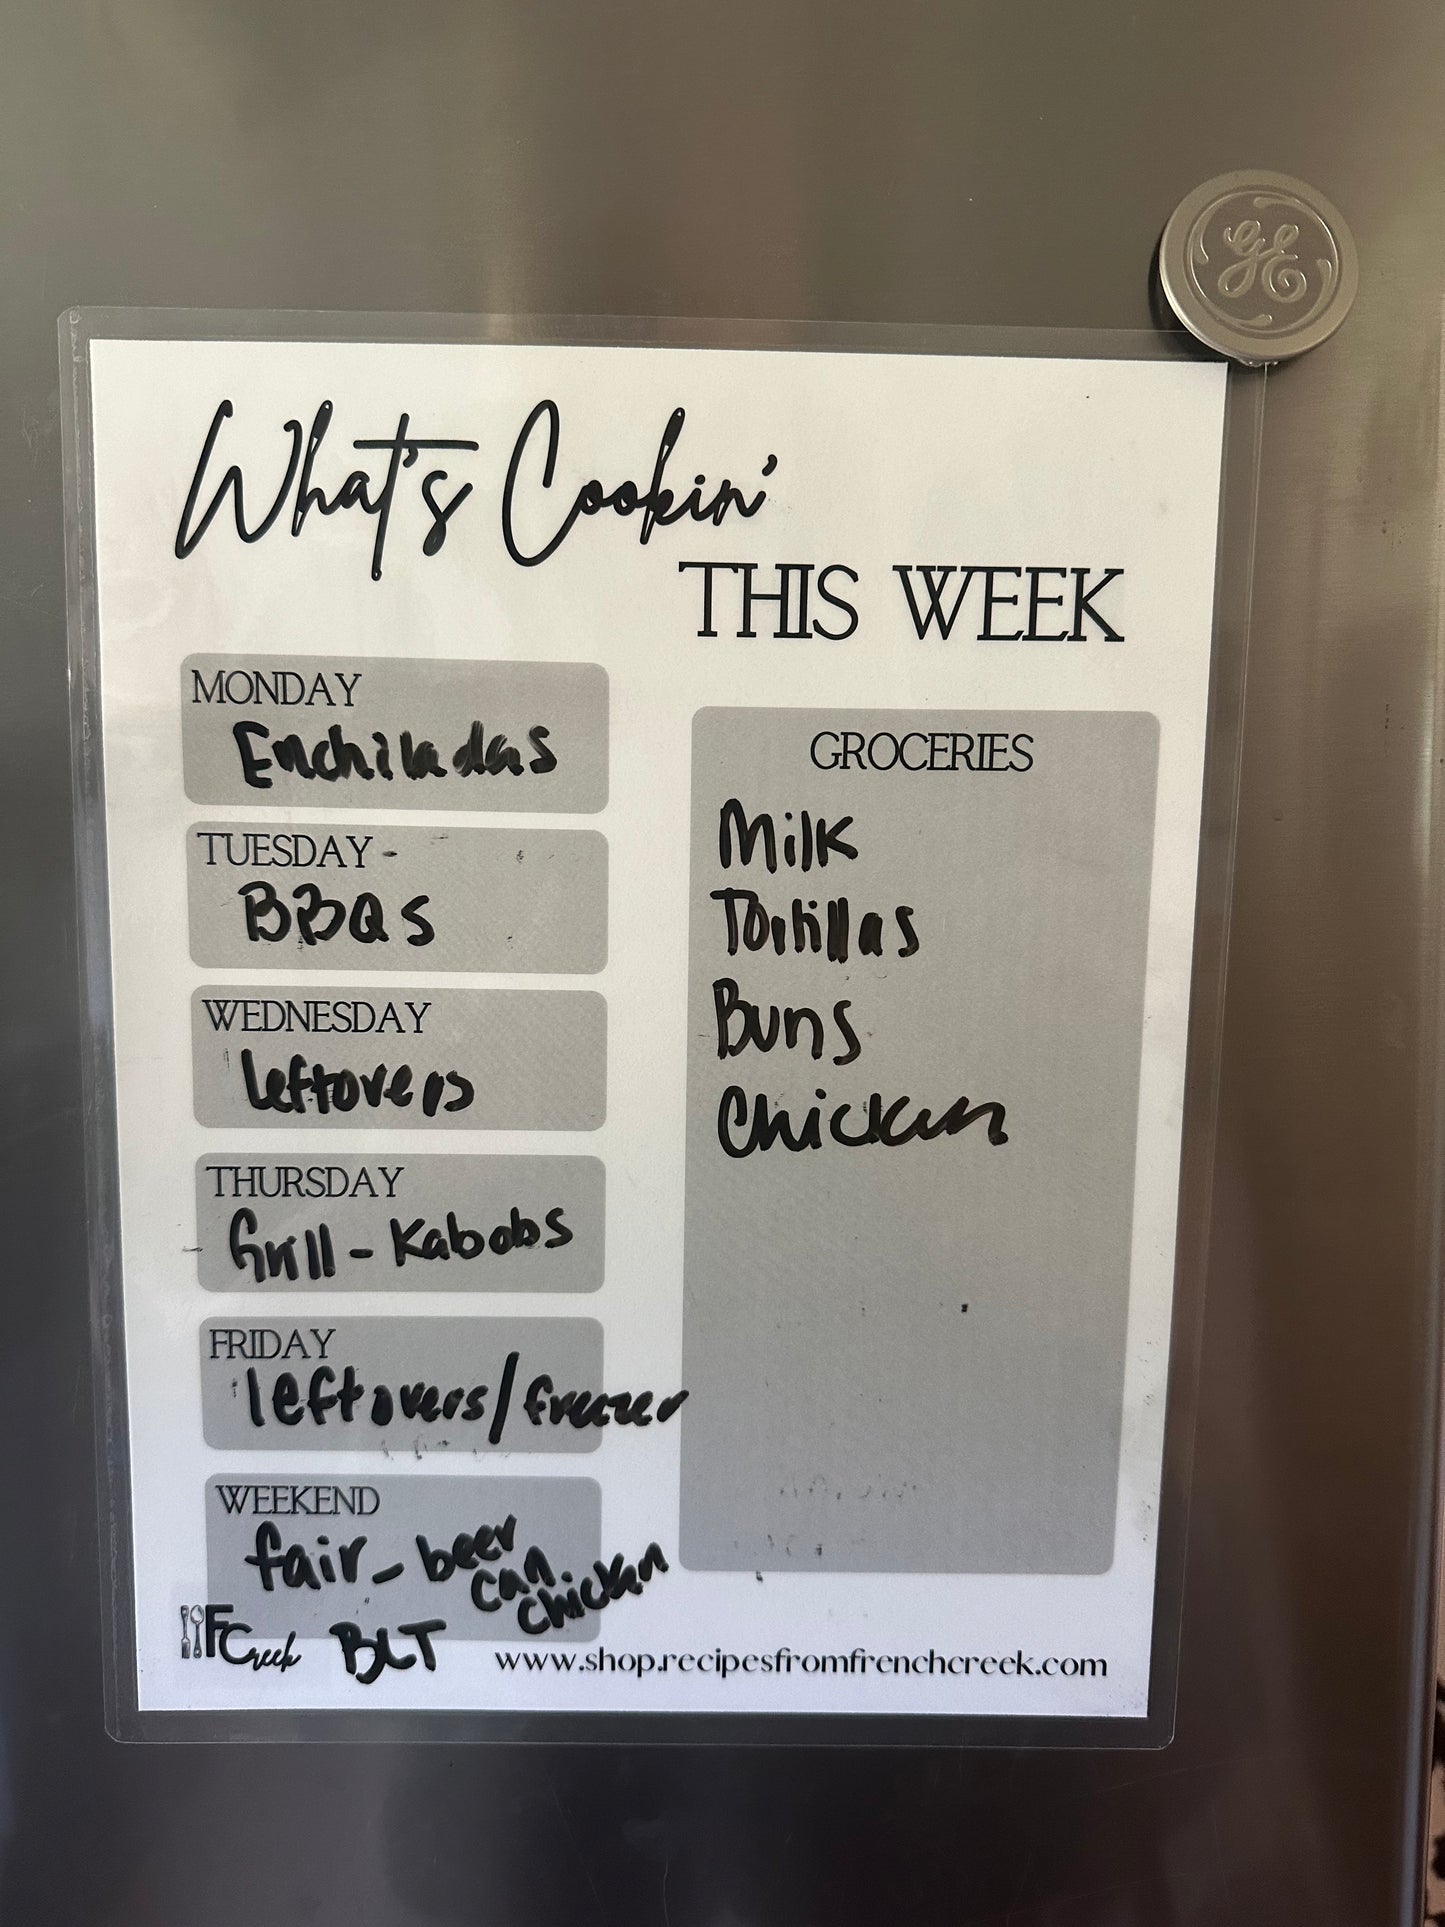 GE
What's Cookin'
THIS WEEK
MONDAY
Enchiladas
TUESDAY -
BBQs
WEDNESDAY
leftovers
THURSDAY
Grill - Kabobs
FRIDAY
leftovers/freezer
WEEKEND
fair - beer
can
chicken
BLT
GROCERIES
Milk
Tortillas
Buns
Chicken
FCreek
www.shop.recipesfromfrenchcreek.com